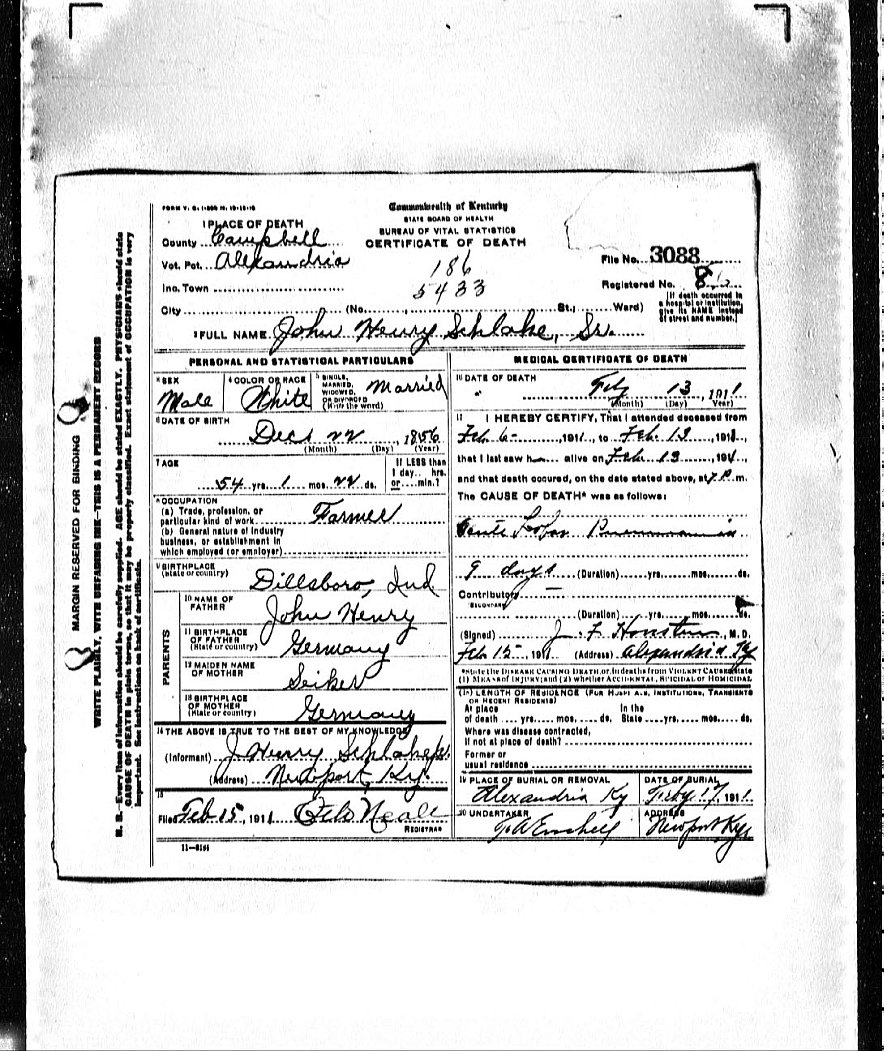 FORM V. S. 1-
Commonwealth of Kentucky
STATE BOARD OF HEALTH
BUREAU OF VITAL STATISTICS
CERTIFICATE OF DEATH
1 PLACE OF DEATH
County Campbell
Vot. Pct. Alexandria
Inc. Town
City (No. St., Ward)
186
5433
File No. 3088
Registered No. 8
[If death occurred in a hospital or institution, give its NAME instead of street and number.]
2 FULL NAME John Henry Schlake, Sr.
PERSONAL AND STATISTICAL PARTICULARS
3 SEX Male
4 COLOR OR RACE White
5 SINGLE, MARRIED, WIDOWED, OR DIVORCED (Write the word) Married
6 DATE OF BIRTH
Dec 22, 1856
(Month) (Day) (Year)
7 AGE
54 yrs. 1 mos. 22 ds.
If LESS than 1 day.. hrs. or.... min.?
8 OCCUPATION
(a) Trade, profession, or particular kind of work Farmer
(b) General nature of industry business, or establishment in which employed (or employer)
9 BIRTHPLACE (State or country) Dillsboro, Ind
PARENTS
10 NAME OF FATHER John Henry
11 BIRTHPLACE OF FATHER (State or country) Germany
12 MAIDEN NAME OF MOTHER Seiker
13 BIRTHPLACE OF MOTHER (State or country) Germany
14 THE ABOVE IS TRUE TO THE BEST OF MY KNOWLEDGE
(Informant) J. Henry Schlake
(Address) Newport, Ky.
15
Filed Feb 15, 1911 Neall
REGISTRAR
11-
MEDICAL CERTIFICATE OF DEATH
16 DATE OF DEATH
Feby 13, 1911
(Month) (Day) (Year)
17 I HEREBY CERTIFY, That I attended deceased from
Feb 6, 1911, to Feb. 13, 1911,
that I last saw h alive on Feb 13, 1911,
and that death occured, on the date stated above, at 7 P. m.
The CAUSE OF DEATH* was as follows:
Acute Lobar Pneumonia
9 days (Duration) yrs. mos. ds.
Contributory
(SECONDARY)
(Duration) yrs. mos. ds.
(Signed) J. F. M. D.
Feb 15, 1911 (Address) Alexandria Ky
*State the DISEASE CAUSING DEATH, or, in deaths from VIOLENT CAUSES, state
(1) MEANS OF INJURY; and (2) whether ACCIDENTAL, SUICIDAL or HOMICIDAL
18 LENGTH OF RESIDENCE (FOR HOSPITALS, INSTITUTIONS, TRANSIENTS OR RECENT RESIDENTS)
At place of death yrs. mos. ds. In the State yrs. mos. ds.
Where was disease contracted,
If not at place of death?
Former or
usual residence
19 PLACE OF BURIAL OR REMOVAL
Alexandria Ky
DATE OF BURIAL
Feby 17, 1911
20 UNDERTAKER
ADDRESS
Newport Ky
MARGIN RESERVED FOR BINDING
WRITE PLAINLY, WITH UNFADING INK—THIS IS A PERMANENT RECORD
N. B.—Every item of information should be carefully supplied. AGE should be stated EXACTLY. PHYSICIANS should state
CAUSE OF DEATH in plain terms, so that it may be properly classified. Exact statement of OCCUPATION is very
important. See instructions on back of certificate.